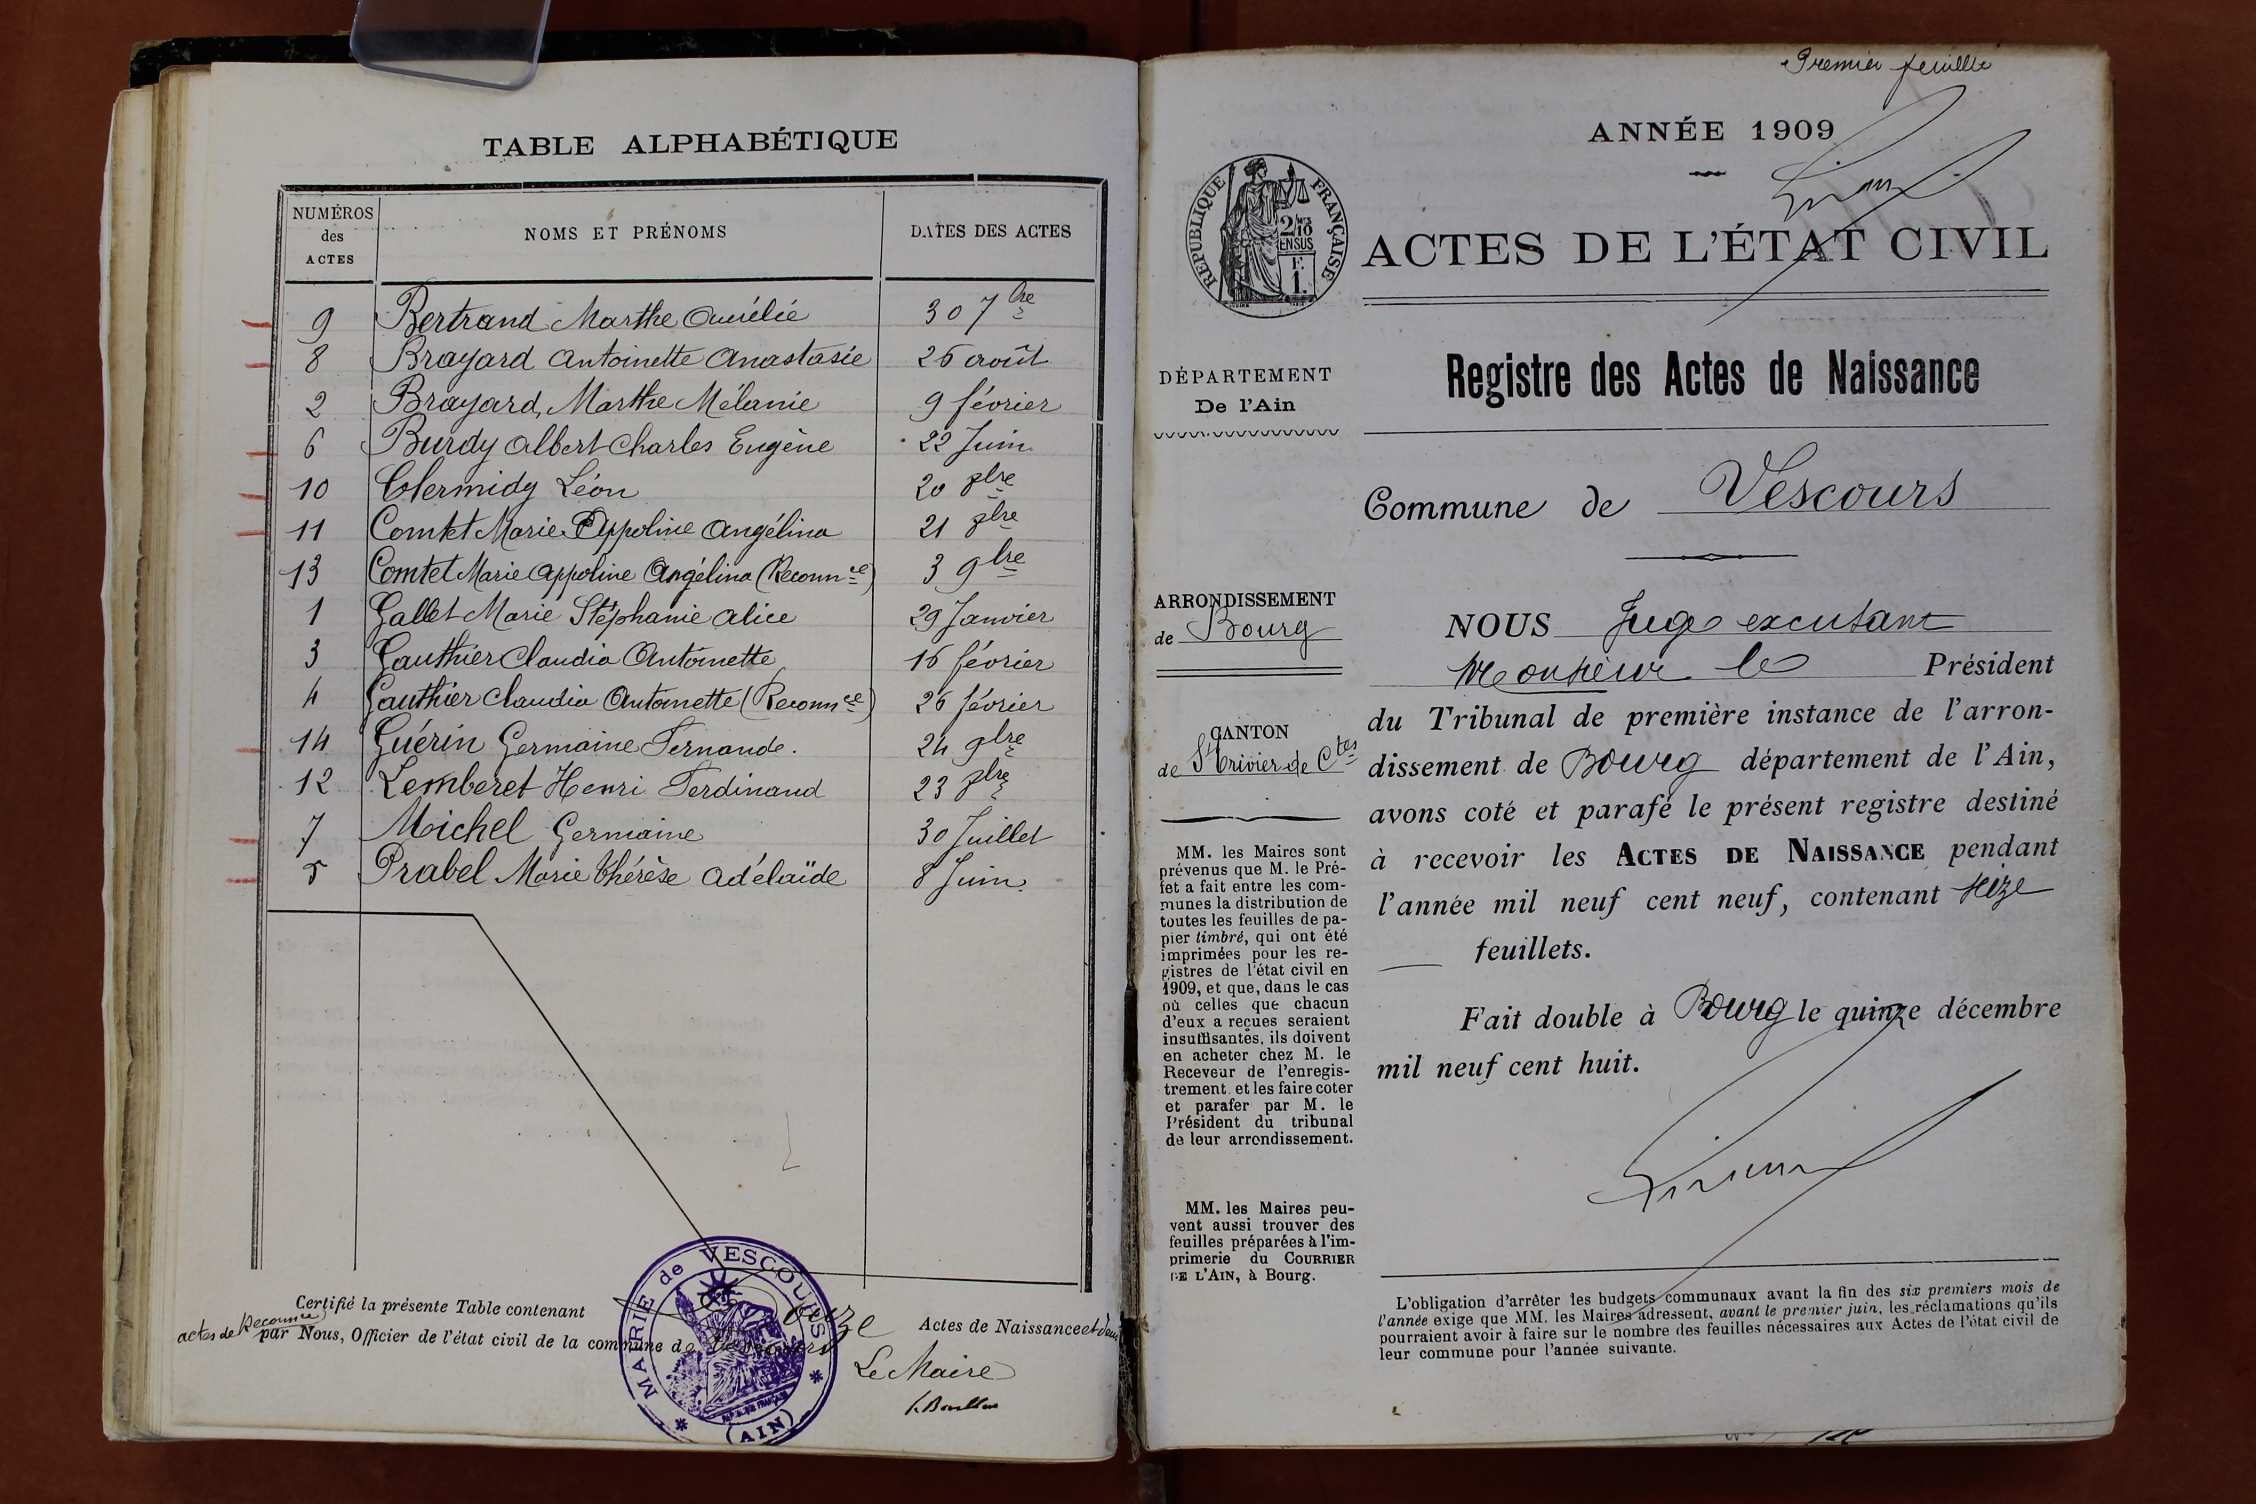 TABLE ALPHABÉTIQUE
NUMÉROS des ACTES NOMS ET PRÉNOMS DATES DES ACTES
9 Bertrand Marthe Aurélie 30 7bre
8 Brayard Antoinette Anastasie 26 août
2 Brayard, Marthe Mélanie 9 février
6 Burdy Albert Charles Eugène 22 Juin
10 Clermidy Léon 20 8bre
11 Comtet Marie Appoline Angélina 21 8bre
13 Comtet Marie Appoline Angélina (Reconnce) 3 9bre
1 Gallet Marie Stéphanie Alice 29 Janvier
3 Gauthier Claudia Antoinette 16 février
4 Gauthier Claudia Antoinette (Reconnce) 26 février
14 Guérin Germaine Fernande. 24 9bre
12 Lemberet Henri Ferdinand 23 8bre
7 Michel Germaine 30 Juillet
5 Prabel Marie Thérèse Adélaïde 8 Juin
Certifié la présente Table contenant douze Actes de Naissance et deux
actes de Reconnce par Nous, Officier de l'état civil de la commune de Vescours
Le Maire
MAIRIE de VESCOURS
(AIN)
Premier feuillet
ANNÉE 1909
RÉPUBLIQUE FRANÇAISE
2/10 EN SUS
F. 1.
ACTES DE L'ÉTAT CIVIL
Registre des Actes de Naissance
DÉPARTEMENT
De l'Ain
Commune de Vescours
ARRONDISSEMENT
de Bourg
CANTON
de St Trivier de Ctes
MM. les Maires sont
prévenus que M. le Pré-
fet a fait entre les com-
munes la distribution de
toutes les feuilles de pa-
pier timbré, qui ont été
imprimées pour les re-
gistres de l'état civil en
1909, et que, dans le cas
où celles que chacun
d'eux a reçues seraient
insuffisantes, ils doivent
en acheter chez M. le
Receveur de l'enregis-
trement et les faire coter
et parafer par M. le
Président du tribunal
de leur arrondissement.
MM. les Maires peu-
vent aussi trouver des
feuilles préparées à l'im-
primerie du COURRIER
DE L'AIN, à Bourg.
NOUS Juge excusant
Monsieur le Président
du Tribunal de première instance de l'arron-
dissement de Bourg département de l'Ain,
avons coté et parafé le présent registre destiné
à recevoir les ACTES DE NAISSANCE pendant
l'année mil neuf cent neuf, contenant seize
feuillets.
Fait double à Bourg le quinze décembre
mil neuf cent huit.
L'obligation d'arrêter les budgets communaux avant la fin des six premiers mois de
l'année exige que MM. les Maires adressent, avant le premier juin, les réclamations qu'ils
pourraient avoir à faire sur le nombre des feuilles nécessaires aux Actes de l'état civil de
leur commune pour l'année suivante.